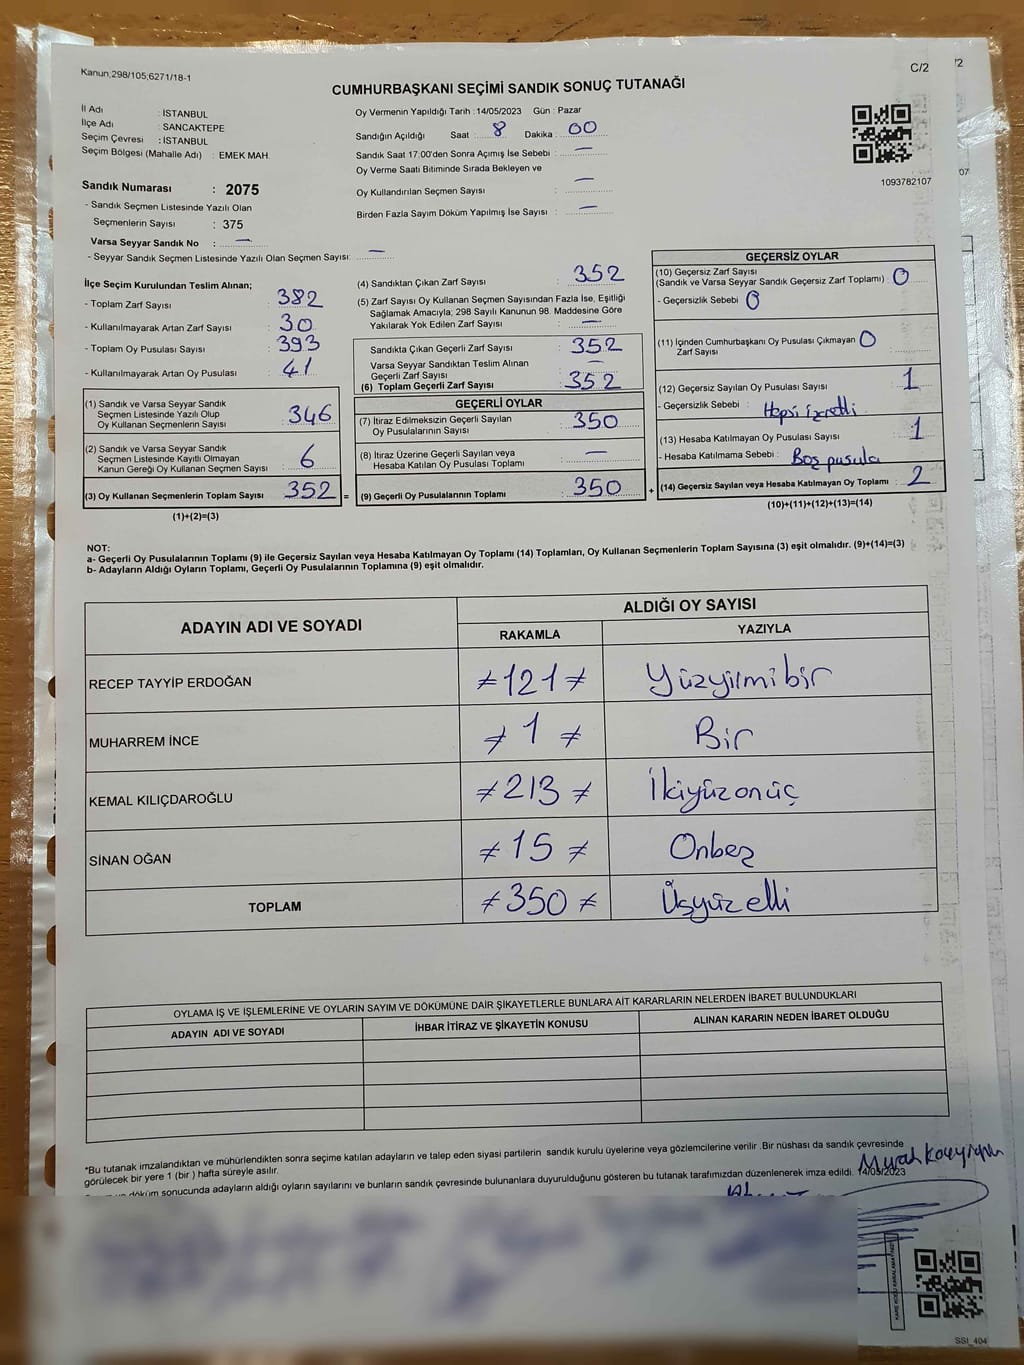 Kanun;298/105;6271/18-1
C/2
'2
CUMHURBAŞKANI SEÇİMİ SANDIK SONUÇ TUTANAĞI
İl Adı : İSTANBUL
İlçe Adı : SANCAKTEPE
Seçim Çevresi : İSTANBUL
Seçim Bölgesi (Mahalle Adı) : EMEK MAH.
Oy Vermenin Yapıldığı Tarih : 14/05/2023 Gün : Pazar
Sandığın Açıldığı Saat : 8 Dakika : 00
Sandık Saat 17.00'den Sonra Açımış İse Sebebi : —
Oy Verme Saati Bitiminde Sırada Bekleyen ve
Oy Kullandırılan Seçmen Sayısı : —
Birden Fazla Sayım Döküm Yapılmış İse Sayısı : —
1093782107
07
Sandık Numarası : 2075
- Sandık Seçmen Listesinde Yazılı Olan
Seçmenlerin Sayısı : 375
Varsa Seyyar Sandık No : —
- Seyyar Sandık Seçmen Listesinde Yazılı Olan Seçmen Sayısı: —
İlçe Seçim Kurulundan Teslim Alınan;
- Toplam Zarf Sayısı : 382
- Kullanılmayarak Artan Zarf Sayısı : 30
- Toplam Oy Pusulası Sayısı : 393
- Kullanılmayarak Artan Oy Pusulası : 41
(1) Sandık ve Varsa Seyyar Sandık
Seçmen Listesinde Yazılı Olup
Oy Kullanan Seçmenlerin Sayısı : 346
(2) Sandık ve Varsa Seyyar Sandık
Seçmen Listesinde Kayıtlı Olmayan
Kanun Gereği Oy Kullanan Seçmen Sayısı : 6
(3) Oy Kullanan Seçmenlerin Toplam Sayısı : 352 =
(1)+(2)=(3)
(4) Sandıktan Çıkan Zarf Sayısı : 352
(5) Zarf Sayısı Oy Kullanan Seçmen Sayısından Fazla İse, Eşitliği
Sağlamak Amacıyla; 298 Sayılı Kanunun 98. Maddesine Göre
Yakılarak Yok Edilen Zarf Sayısı : —
Sandıkta Çıkan Geçerli Zarf Sayısı : 352
Varsa Seyyar Sandıktan Teslim Alınan
Geçerli Zarf Sayısı : —
(6) Toplam Geçerli Zarf Sayısı : 352
GEÇERLİ OYLAR
(7) İtiraz Edilmeksizin Geçerli Sayılan
Oy Pusulalarının Sayısı : 350
(8) İtiraz Üzerine Geçerli Sayılan veya
Hesaba Katılan Oy Pusulası Toplamı : —
(9) Geçerli Oy Pusulalarının Toplamı : 350 +
GEÇERSİZ OYLAR
(10) Geçersiz Zarf Sayısı
(Sandık ve Varsa Seyyar Sandık Geçersiz Zarf Toplamı) : 0
- Geçersizlik Sebebi : 0
(11) İçinden Cumhurbaşkanı Oy Pusulası Çıkmayan
Zarf Sayısı : 0
(12) Geçersiz Sayılan Oy Pusulası Sayısı : 1
- Geçersizlik Sebebi : Hepsi işaretli
(13) Hesaba Katılmayan Oy Pusulası Sayısı : 1
- Hesaba Katılmama Sebebi : Boş pusula
(14) Geçersiz Sayılan veya Hesaba Katılmayan Oy Toplamı : 2
(10)+(11)+(12)+(13)=(14)
NOT:
a- Geçerli Oy Pusulalarının Toplamı (9) ile Geçersiz Sayılan veya Hesaba Katılmayan Oy Toplamı (14) Toplamları, Oy Kullanan Seçmenlerin Toplam Sayısına (3) eşit olmalıdır. (9)+(14)=(3)
b- Adayların Aldığı Oyların Toplamı, Geçerli Oy Pusulalarının Toplamına (9) eşit olmalıdır.
ADAYIN ADI VE SOYADI
ALDIĞI OY SAYISI
RAKAMLA YAZIYLA
RECEP TAYYİP ERDOĞAN ≠121≠ Yüzyilmibir
MUHARREM İNCE ≠ 1 ≠ Bir
KEMAL KILIÇDAROĞLU ≠213≠ İkiyüzonüç
SİNAN OĞAN ≠15≠ Onbeş
TOPLAM ≠350≠ Üçyüzelli
OYLAMA İŞ VE İŞLEMLERİNE VE OYLARIN SAYIM VE DÖKÜMÜNE DAİR ŞİKAYETLERLE BUNLARA AİT KARARLARIN NELERDEN İBARET BULUNDUKLARI
ADAYIN ADI VE SOYADI İHBAR İTİRAZ VE ŞİKAYETİN KONUSU ALINAN KARARIN NEDEN İBARET OLDUĞU
*Bu tutanak imzalandıktan ve mühürlendikten sonra seçime katılan adayların ve talep eden siyasi partilerin sandık kurulu üyelerine veya gözlemcilerine verilir .Bir nüshası da sandık çevresinde
görülecek bir yere 1 (bir ) hafta süreyle asılır.
döküm sonucunda adayların aldığı oyların sayılarını ve bunların sandık çevresinde bulunanlara duyurulduğunu gösteren bu tutanak tarafımızdan düzenlenerek imza edildi. 14/05/2023
SSI_404